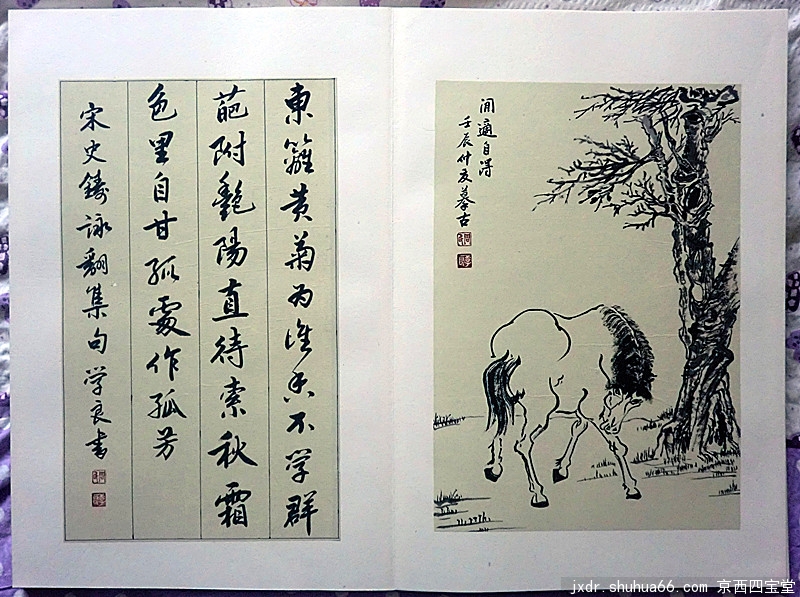 閒適自得
壬辰仲夏摹古
東籬黄菊为谁香不学群
葩附艷陽直待索秋霜
色里自甘孤處作孤芳
宋史鑄詠翻集句学良書
jxdr.shuhua66.com 京西四宝堂